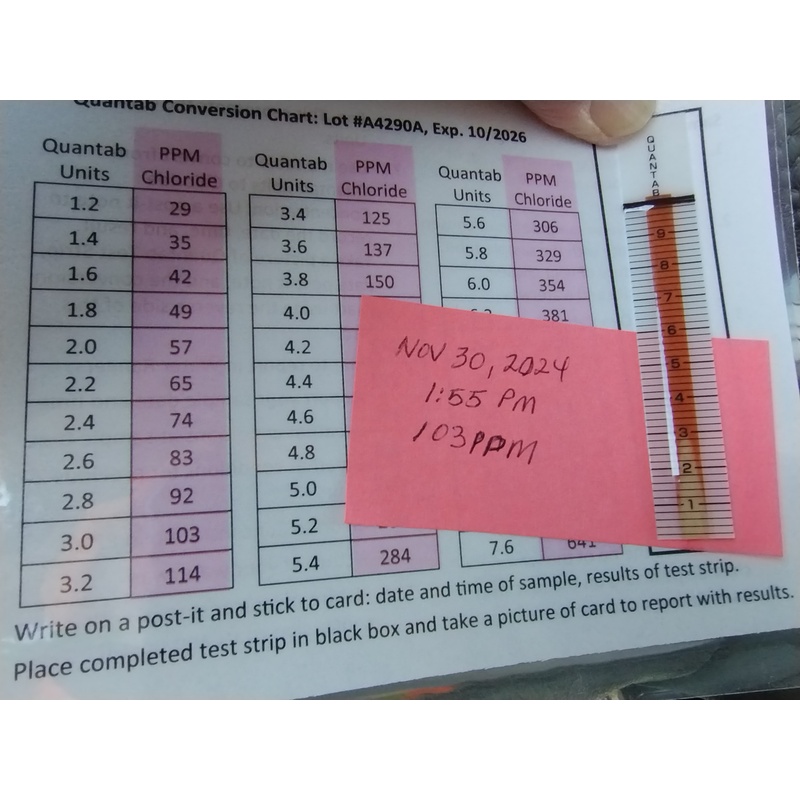 Quantab Conversion Chart: Lot #A4290A, Exp. 10/2026
Quantab Units PPM Chloride
1.2 29
1.4 35
1.6 42
1.8 49
2.0 57
2.2 65
2.4 74
2.6 83
2.8 92
3.0 103
3.2 114
Quantab Units PPM Chloride
3.4 125
3.6 137
3.8 150
4.0
4.2
4.4
4.6
4.8
5.0
5.2
5.4 284
Quantab Units PPM Chloride
5.6 306
5.8 329
6.0 354
381
7.6 641
NOV 30, 2024
1:55 PM
103PPM
QUANTAB
9
8
7
6
5
4
3
2
1
Write on a post-it and stick to card: date and time of sample, results of test strip.
Place completed test strip in black box and take a picture of card to report with results.